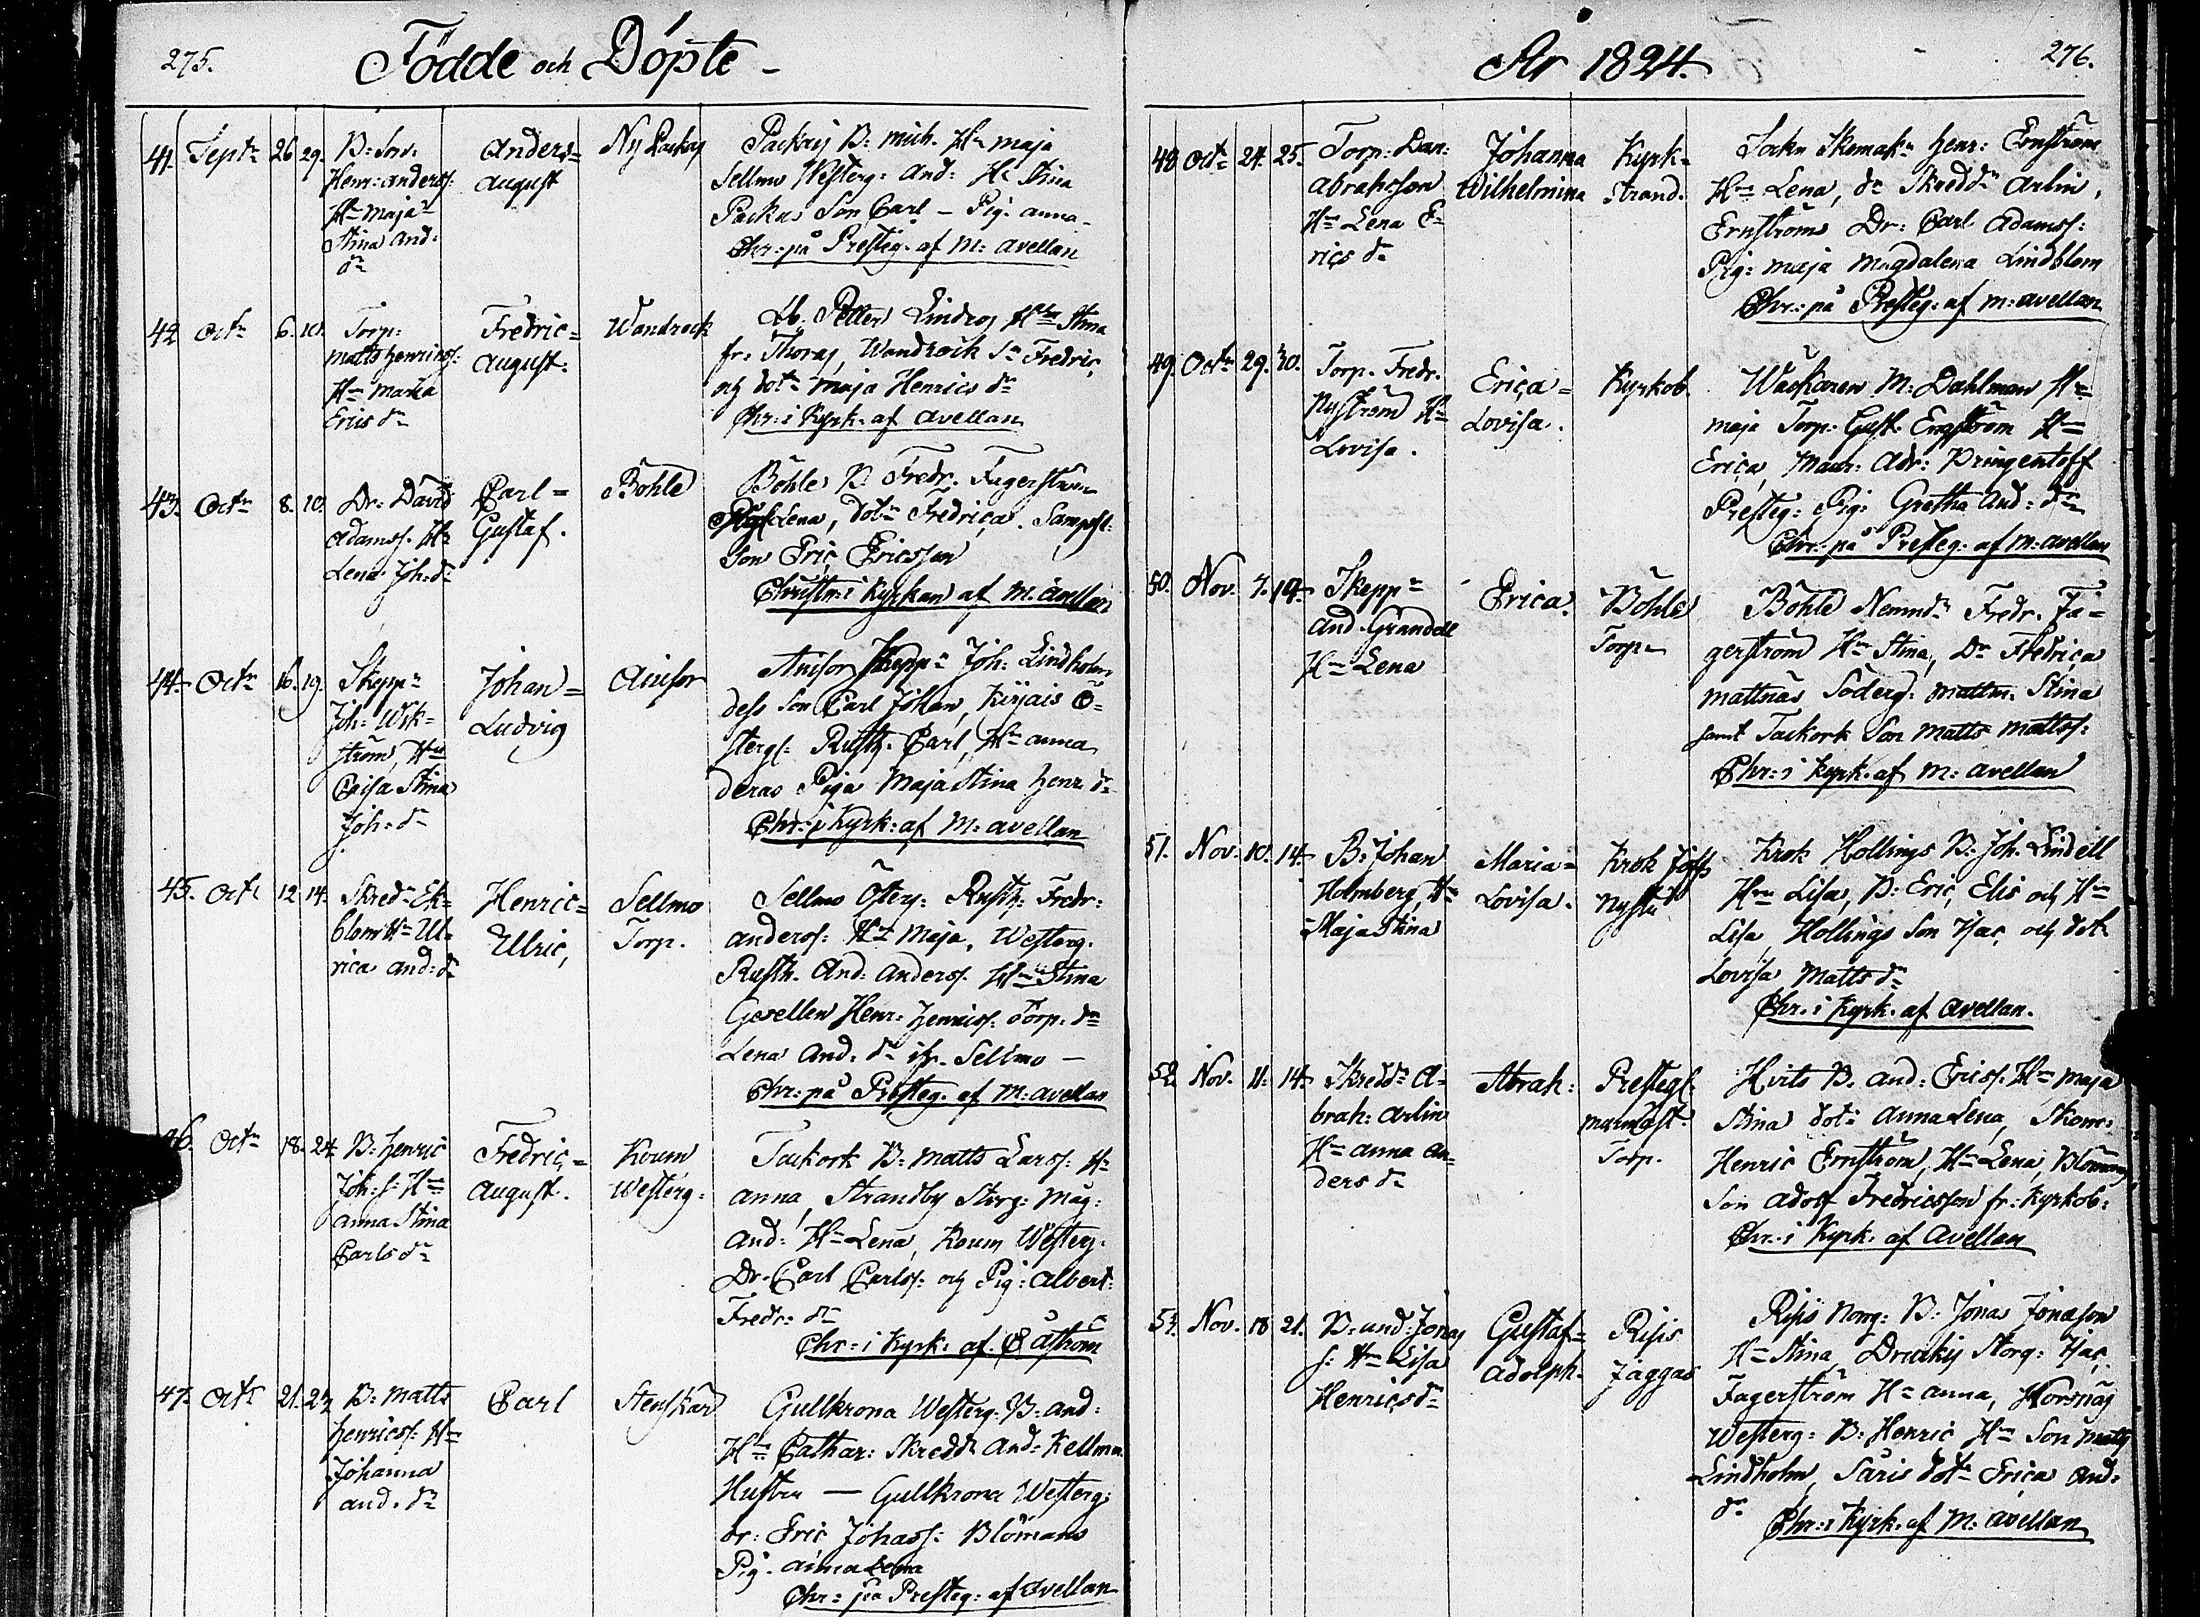 275.
Födde och Döpte -
41. Septr 26. 29.
B: Son.
Henr: anders:
Hu Maja
Stina and:
dr
Anders=
August
Ny Packry
Packrij B: Mich. Hu Maja
Sellmo Westerg: And: Hu Stina
Packas Son Carl - Pig: anna
Chr: på Presteg. af M: avellan
42 Octr 6. 10.
Torp:
Matts henricss:
Hu Maria
Erics dr
Fredric=
August.
Wandrock
Petter Lindros Hu Stina
fr: Thoras, Wandrock Sn Fredric
och dotr Maja Henrics dr
Chr: i Kyrk. af avellan
43. Octr 8. 10.
Dr: David
Adamss. Hu
Lena Joh: dr
Carl=
Gustaf.
Böhle
Böhle B. Fredr. Fagerström
Lena, dotr Fredrica.
Son Eric Ericsson
Christn: i Kyrkan af M. avellan
44. Octr 16. 19.
Skeppr
Joh: Wik=
ström, Hu
Caisa Stina
Joh: dr
Johan=
Ludvig
Anisor
Anisor Skeppr Joh: Lindholm
dess Son Carl Johan, Kirjais Ö=
sterg: Rusth. Carl, Hu anna
deras Piga Maja Stina henr dr
Chr: i Kyrk: af M: avellan
45. Octr 12. 14.
Skredr Ek=
blom Hu Ul=
rica and: dr
Henric=
Ulric,
Sellmo
Torp.
Sellmo Österg: Rusth: Fredr:
anderss: Hu Maja, Westerg.
Rusth. And: anderss. Hu Stina
Gesellen Henr: henricss. Torp: dr
Lena And: dr fr. Sellmo -
Chr: på Presteg. af M: avellan
46. Octr 18. 24.
B: henric
Joh: s: Hu
anna Stina
Carls dr
Fredric=
August.
Koum
Westerg:
Tackork B: Matts Larss: Hu
anna, Strandby Storg: Mag:
And: Hu Lena, Koum Westerg.
Dr. Carl Carlss: och Pig: Albert:
Fredr: dr
Chr: i Kyrk. af Åström
47. Octr 21. 23.
B: Matts
henricss: Hu
Johanna
and. dr
Carl
Stenskär
Gullkrona Westerg: B: and:
Hu Cathar: Skreddr And: Kellman
Hustru - Gullkrona Westerg:
dr: Eric Johass: Blomans
Pig. anna Lena
Chr: på Presteg: af Avellan
År 1824.
276.
48 Octr 24. 25.
Torp: Dan:
Abrahsson
Hu Lena E=
rics dr
Johanna
Wilhelmina
Kyrk=
strand.
Sockn Skomakr henr: Ernström
Hu Lena, dr Skreddr Arlin,
Ernströms Dr: Carl Adamss:
Pig: Maja Magdalena Lindblom
Chr: på Presteg: af M: avellan
49. Octr 29. 30.
Torp. Fredr.
Nyström Hu
Lovisa.
Erica=
Lovisa.
Kyrkob.
M: Dahlman Hu
Maja Torp: Gust. Engström Hu
Erica, Maur: Adr: Pringentoff
Presteg: Pig: Gretha And: dr
Chr: på Presteg: af M: avellan
50. Nov. 7. 14.
Skeppr
And. Grandell
Hu Lena
Erica.
Böhle
Torp
Böhle Nemndn Fredr. Fa=
gerström Hu Stina, Dr Fredrica
Mattnäs Söderg: Mattss. Stina
samt Tackork Son Matts Mattss:
Chr: i Kyrk. af M: avellan
51. Nov. 10. 14.
B: Johan
Holmberg, Hu
Maja Stina
Maria=
Lovisa.
Krok
Nystu
Krok Hollings B: Joh: Lindell
Hu Lisa, B: Eric Elis och Hu
Lisa, Hollings Son Isac och dotr
Lovisa Matts dr
Chr. i Kyrk. af Avellan.
52. Nov. 11. 14.
Skreddr A=
brah: Arlin
Hu anna An=
ders dr
Abrah:
Torp.
Hvits B. and: Ericss. Hu Maja
Stina dotr Anna Lena, Skom:
Henric Ernström, Hu Lena, Blomans
Son Adolf Fredricsson fr: Kyrkob:
Chr: i Kyrk. af Avellan
53. Nov. 18 21.
B: and: Jonas
s: Hu Lisa
Henrics dr
Gustaf=
Adolph.
Risis
Jaggas
Risis Norrg: B: Jonas Jonasson
Hu Stina, Storg: Isac
Fagerström Hu anna, Norsnäs
Westerg: B: Henric Hu Son Matts
Lindholm, Säris dotr Erica And:
dr
Chr: i Kyrk. af M: avellan